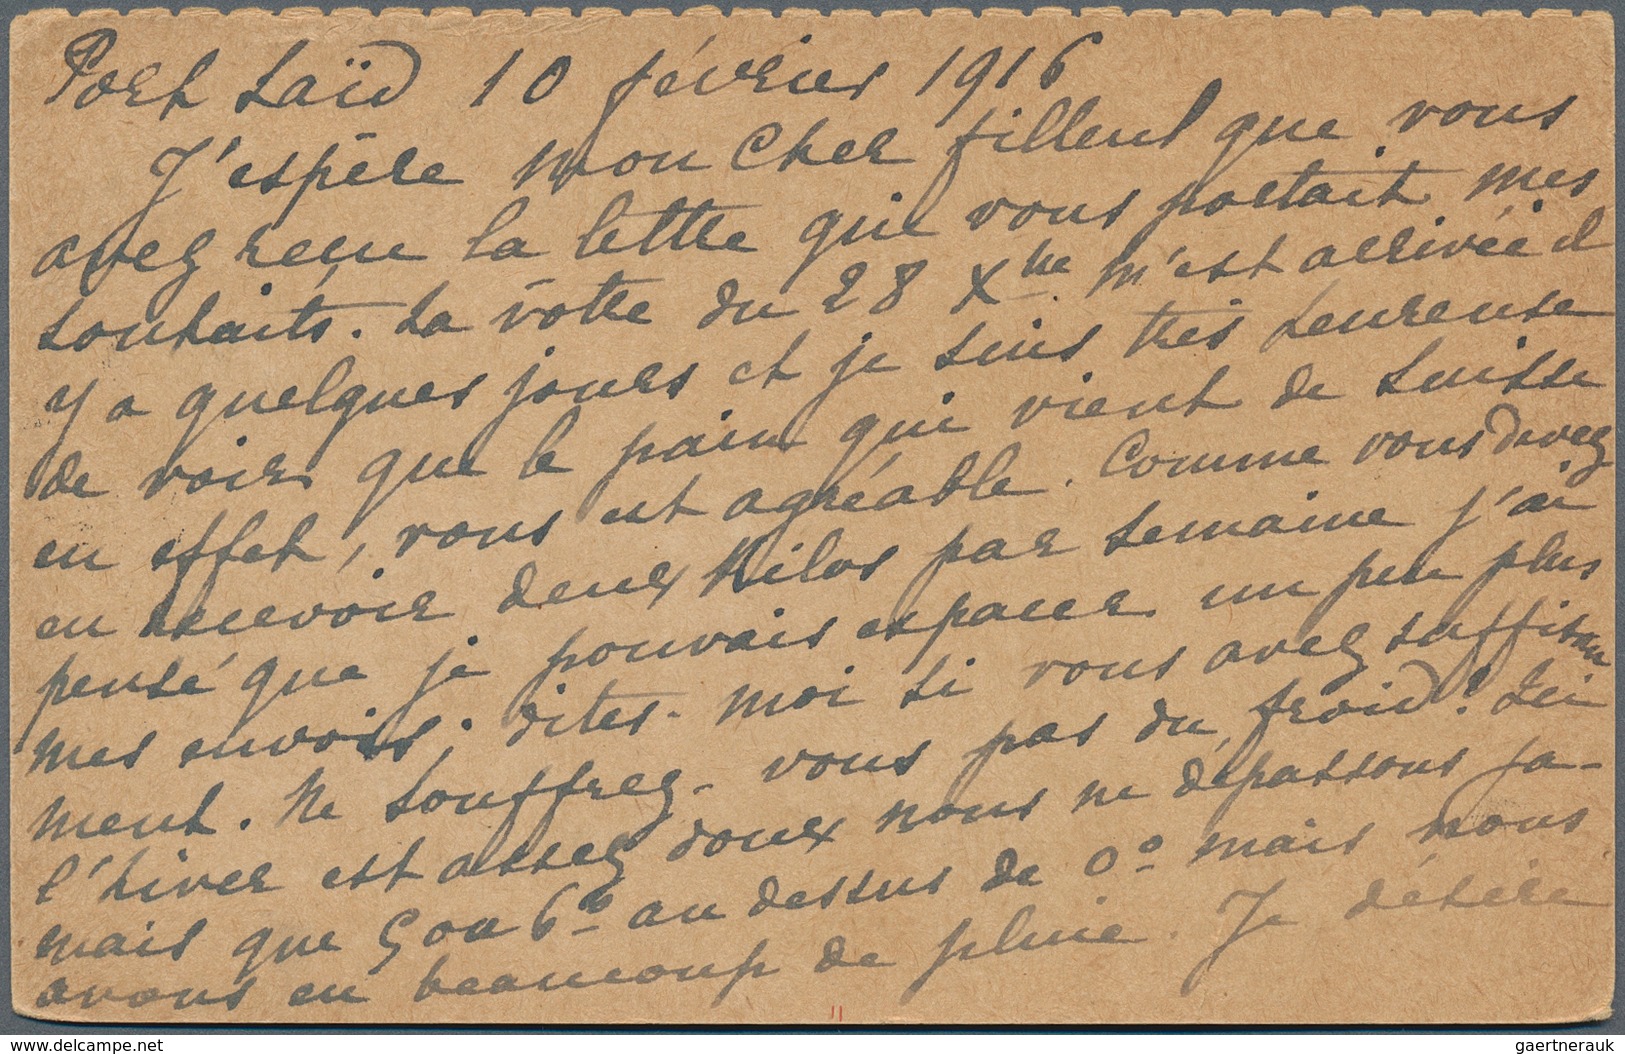 Port Saïd 10 février 1916
J'espère mon cher filleul que vous
avez reçu la lettre qui vous portait mes
souhaits. La vôtre du 28 Xbre m'est arrivée il
y a quelques jours et je suis très heureuse
de voir que le pain qui vient de Suisse
en effet, vous est agréable. Comme vous devez
en recevoir deux kilos par semaine j'ai
pensé que je pouvais espacer un peu plus
mes envois; dites-moi si vous avez suffisam
ment. Ne souffrez-vous pas du froid? Ici
l'hiver est assez doux nous ne dépassons ja-
mais que 5 ou 6° au dessus de 0° mais nous
avons eu beaucoup de pluie. Je désire
delcampe.net
gaertnerauk